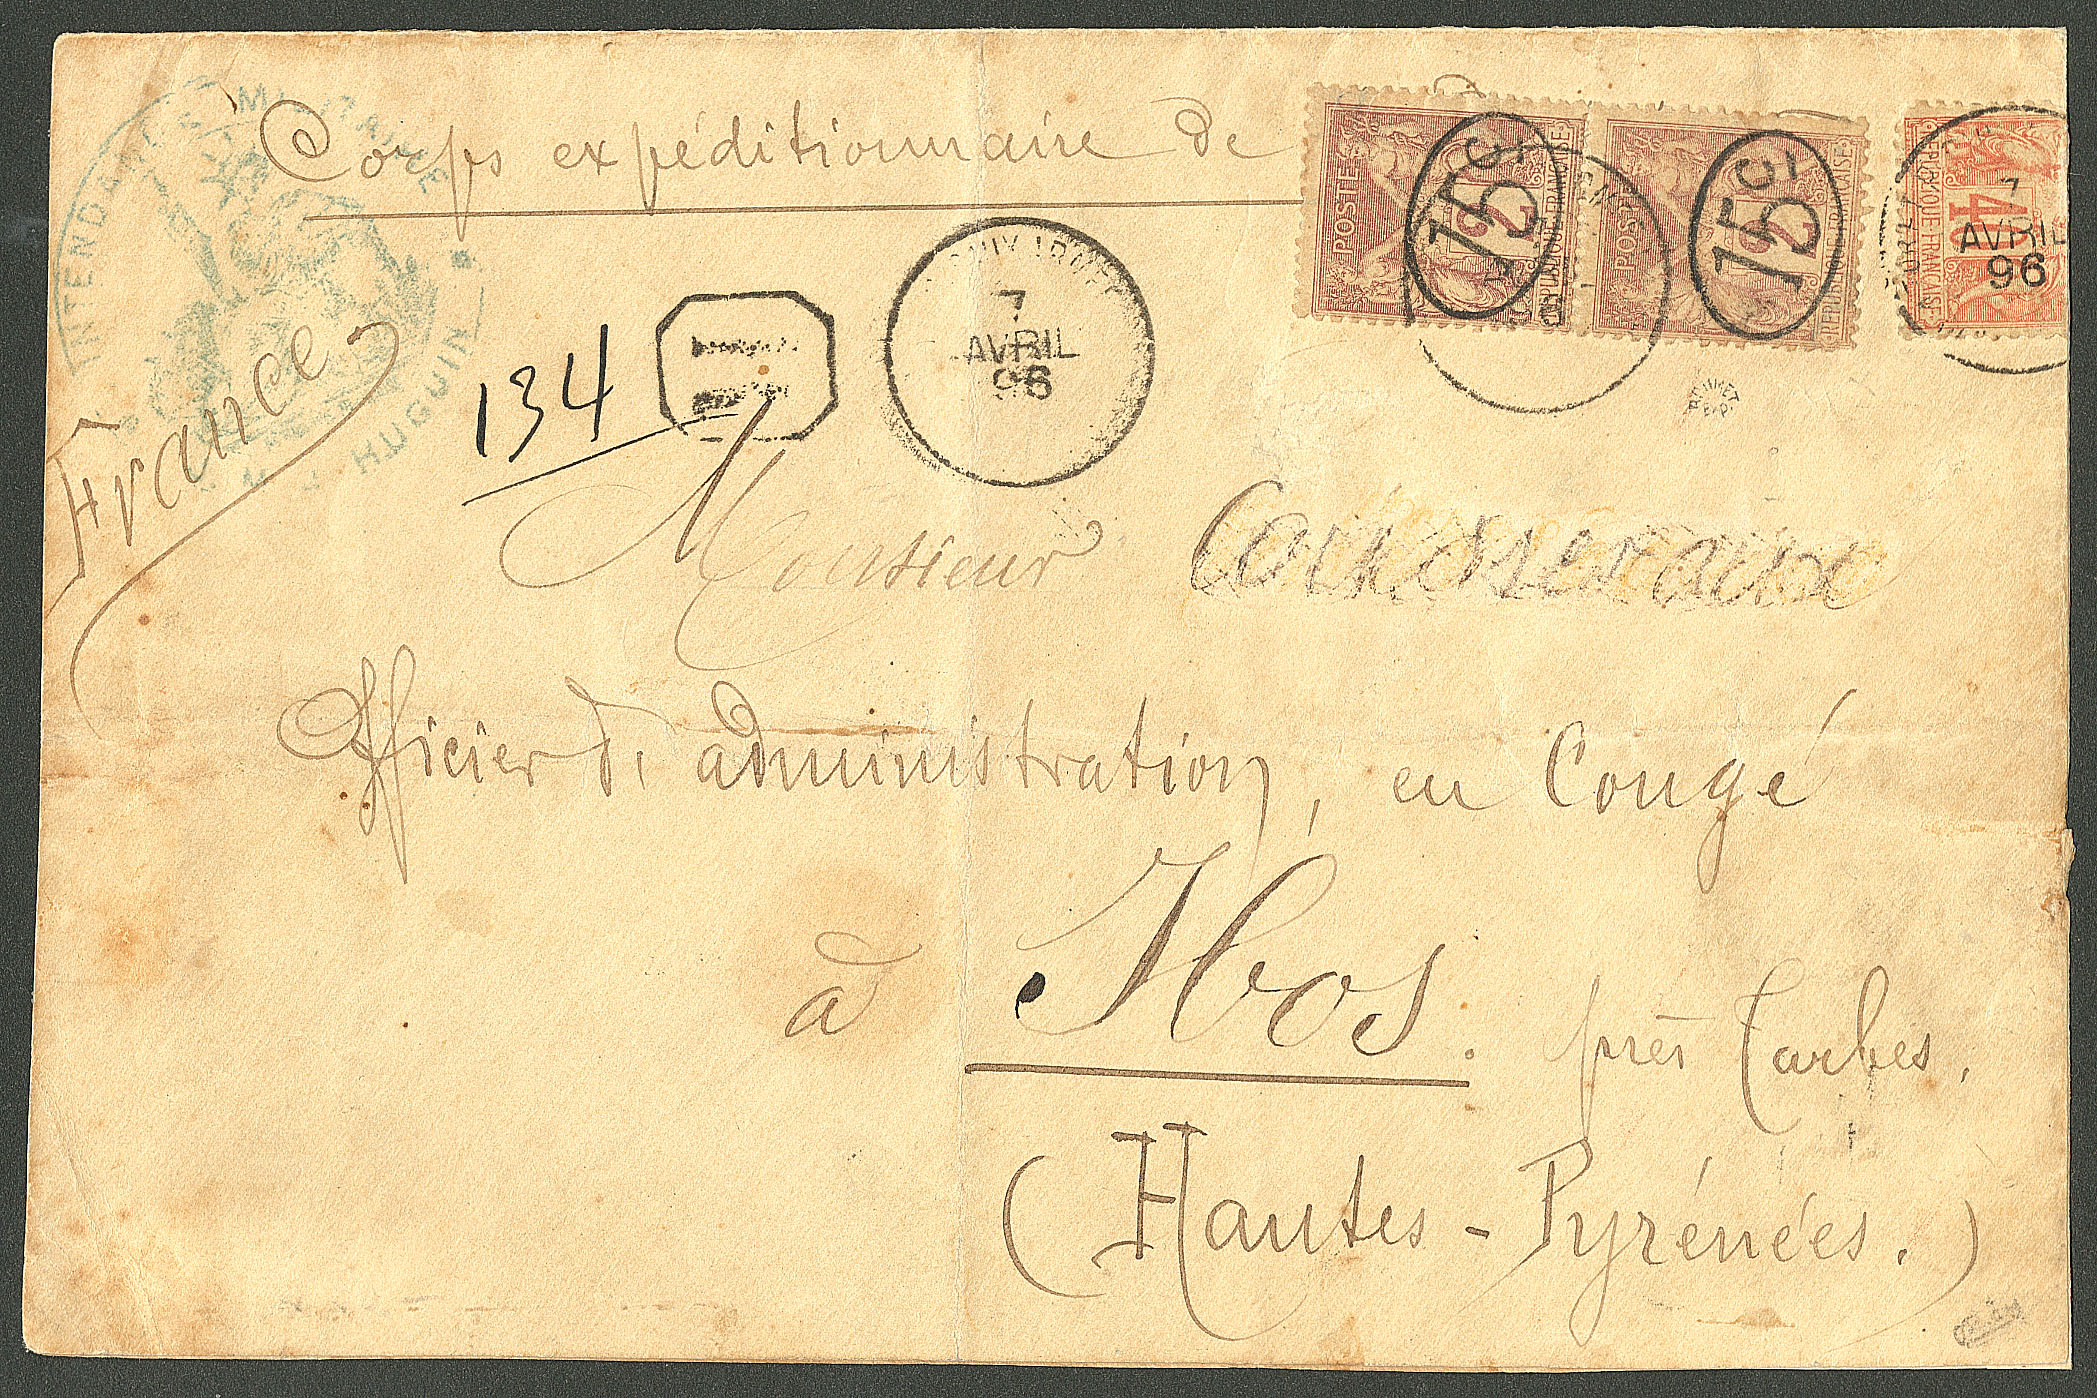 Corps expéditionnaire de
INTENDANCE MILITAIRE
HUGUIN
France
134
7
AVRIL
96
POSTE
2
REPUBLIQUE FRANCAISE
15c
POSTE
2
REPUBLIQUE FRANCAISE
15c
REPUBLIQUE FRANCAISE
40
7
AVRIL
96
Monsieur
Officier d'administration, en Congé
à Ibos. près Tarbes.
(Hautes-Pyrénées.)